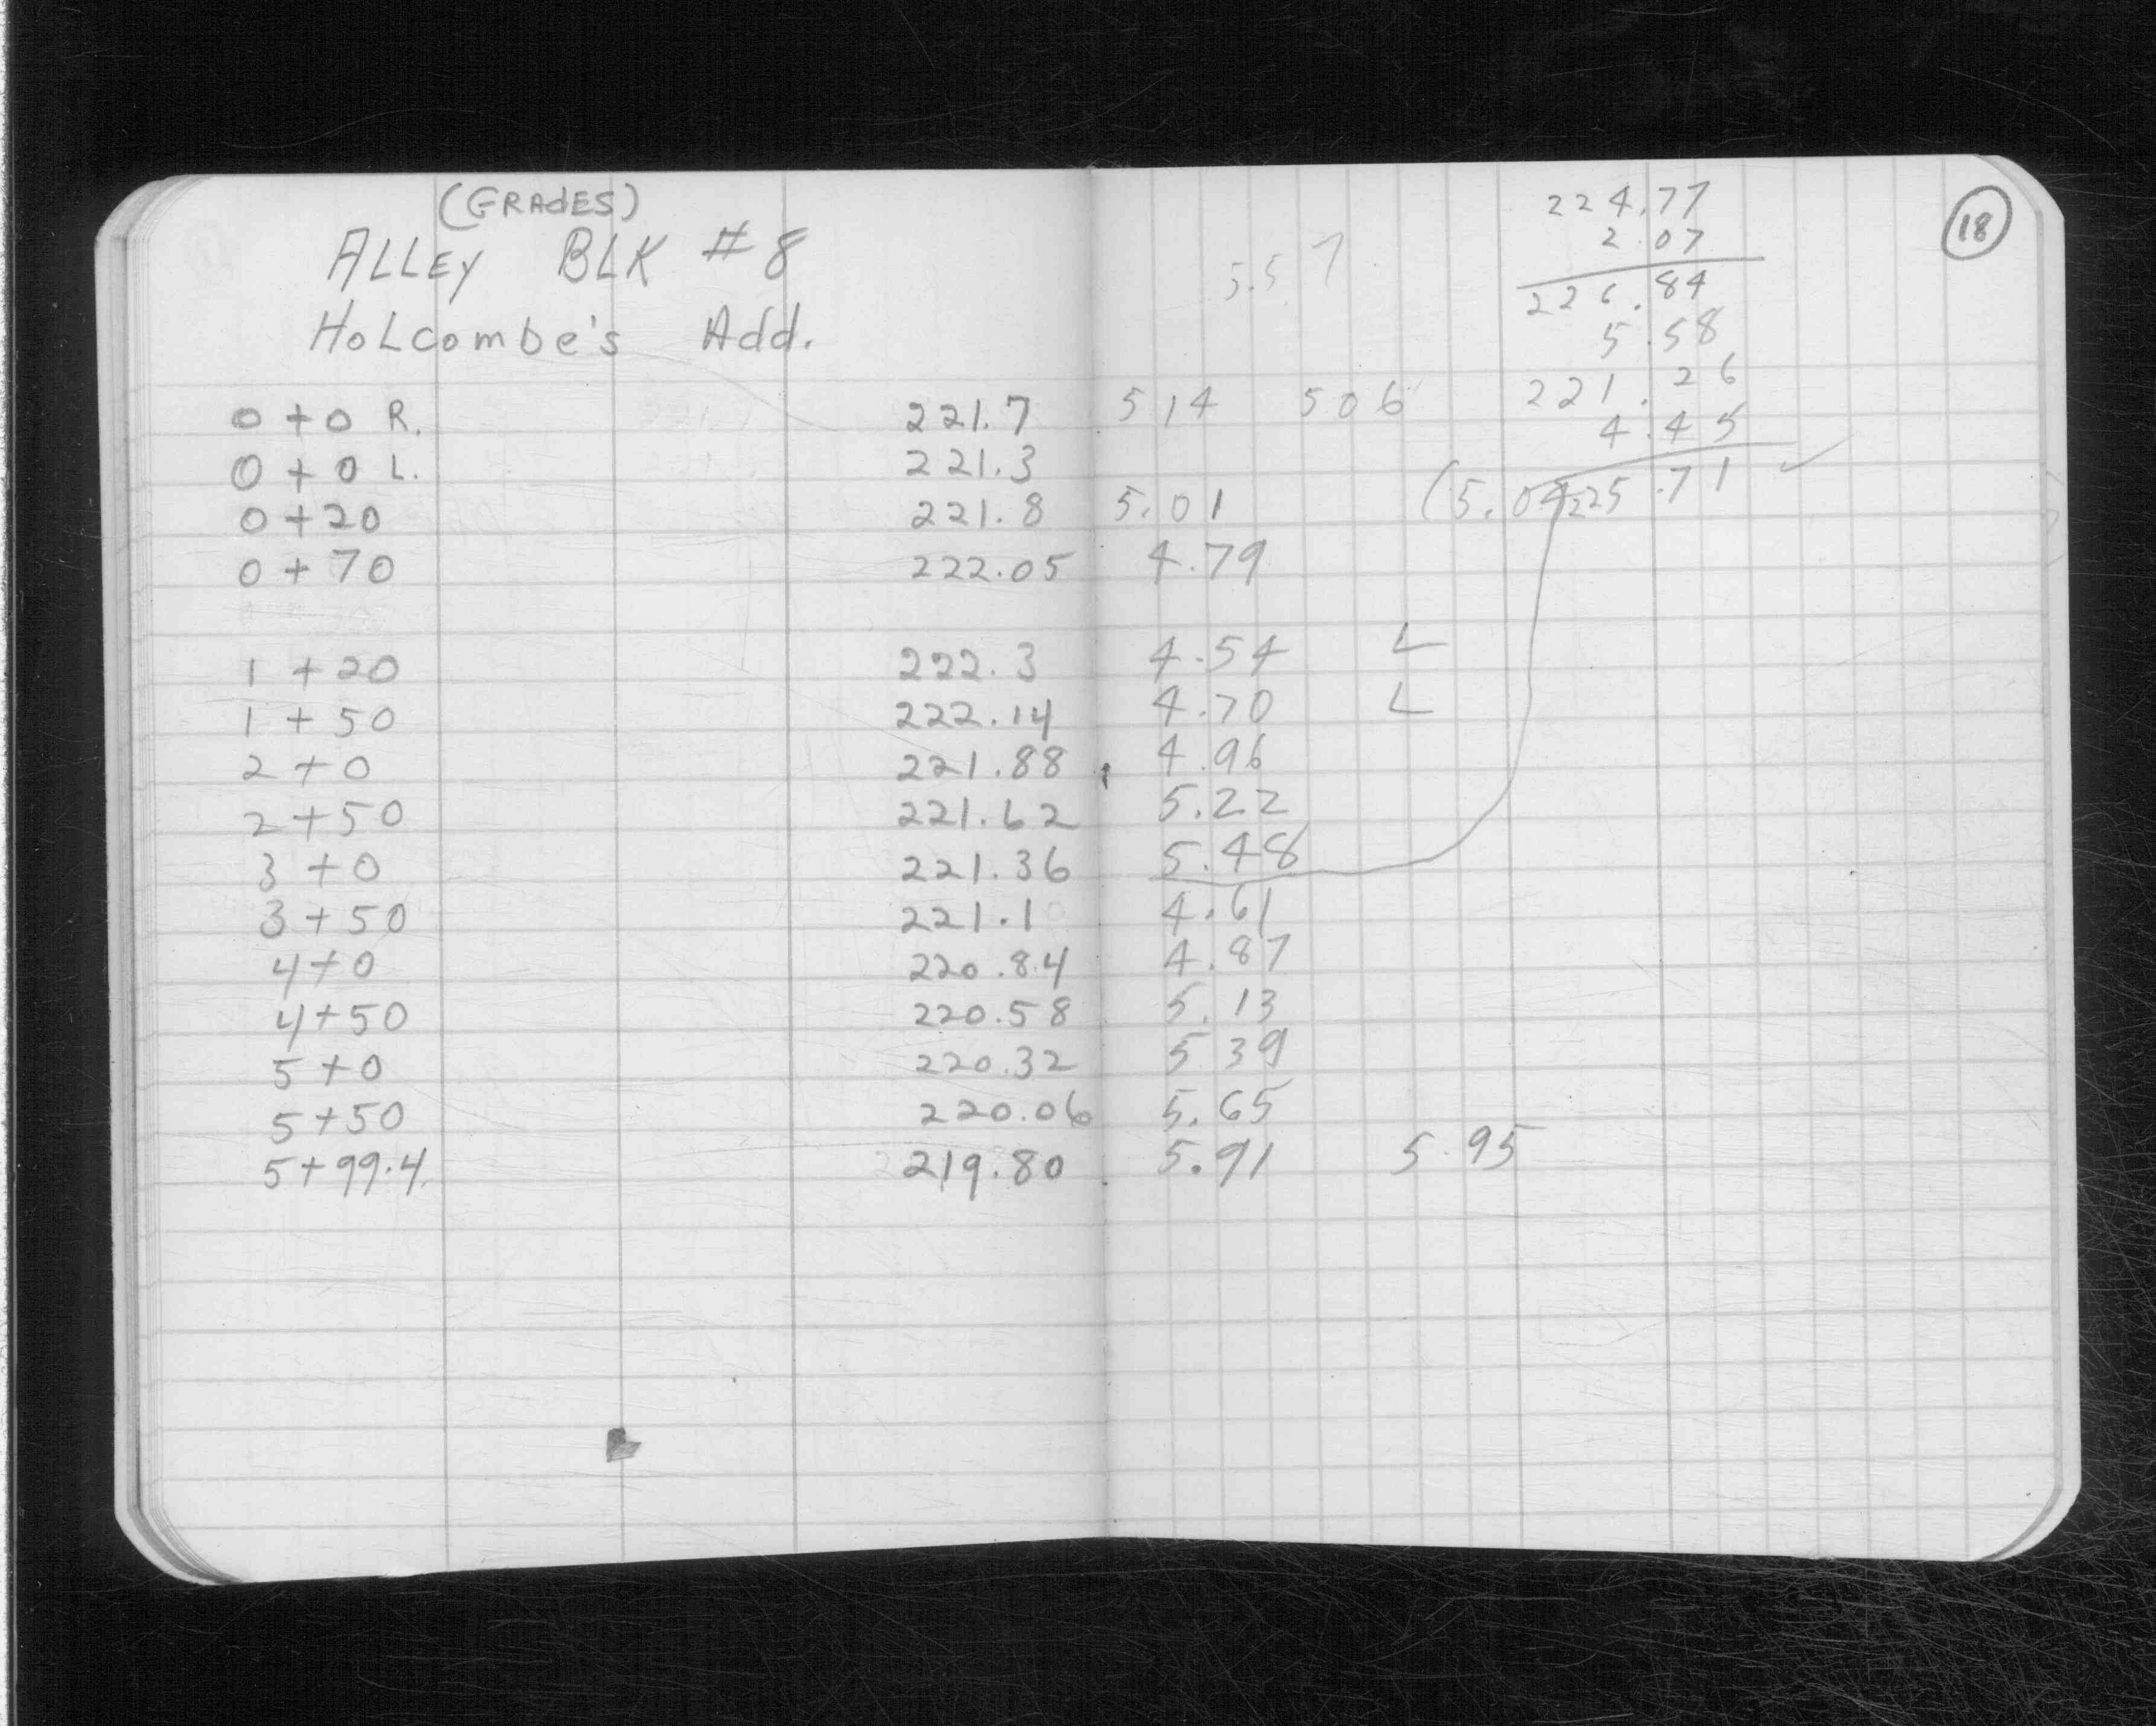 (GRADES)
ALLEY BLK #8
HOLCOMBE'S Add.
0+0 R. 221.7 514 506
0+0 L. 221.3
0+20 221.8 5.01
0+70 222.05 4.79
1+20 222.3 4.54 L
1+50 222.14 4.70 L
2+0 221.88 4.96
2+50 221.62 5.22
3+0 221.36 5.48
3+50 221.10 4.61
4+0 220.84 4.87
4+50 220.58 5.13
5+0 220.32 5.39
5+50 220.06 5.65
5+99.4 219.80 5.91 5.95
5.57
224.77
2.07
226.84
5.58
221.26
4.45
(5.04 225.71 ✓
18